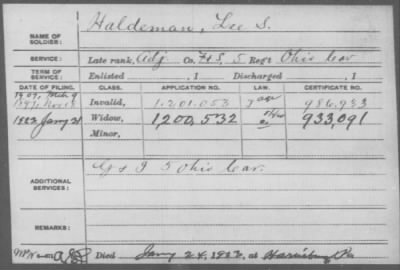 NAME OF SOLDIER: Haldeman, Lee S.
SERVICE: Late rank, Adj Co. F&S, 5 Reg't Ohio Cav
TERM OF SERVICE: Enlisted , 1 Discharged , 1
DATE OF FILING. CLASS. APPLICATION NO. LAW. CERTIFICATE NO.
Invalid, 1.201.053 986,933
Widow, 1,200,532 933,091
Minor,
ADDITIONAL SERVICES: G & I 5 Ohio Cav.
REMARKS:
Died Jany 24, at Harrisburg Pa